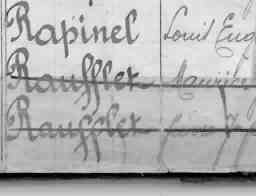 Rapinel Louis Eug
Raufflet Maurice
Raufflet